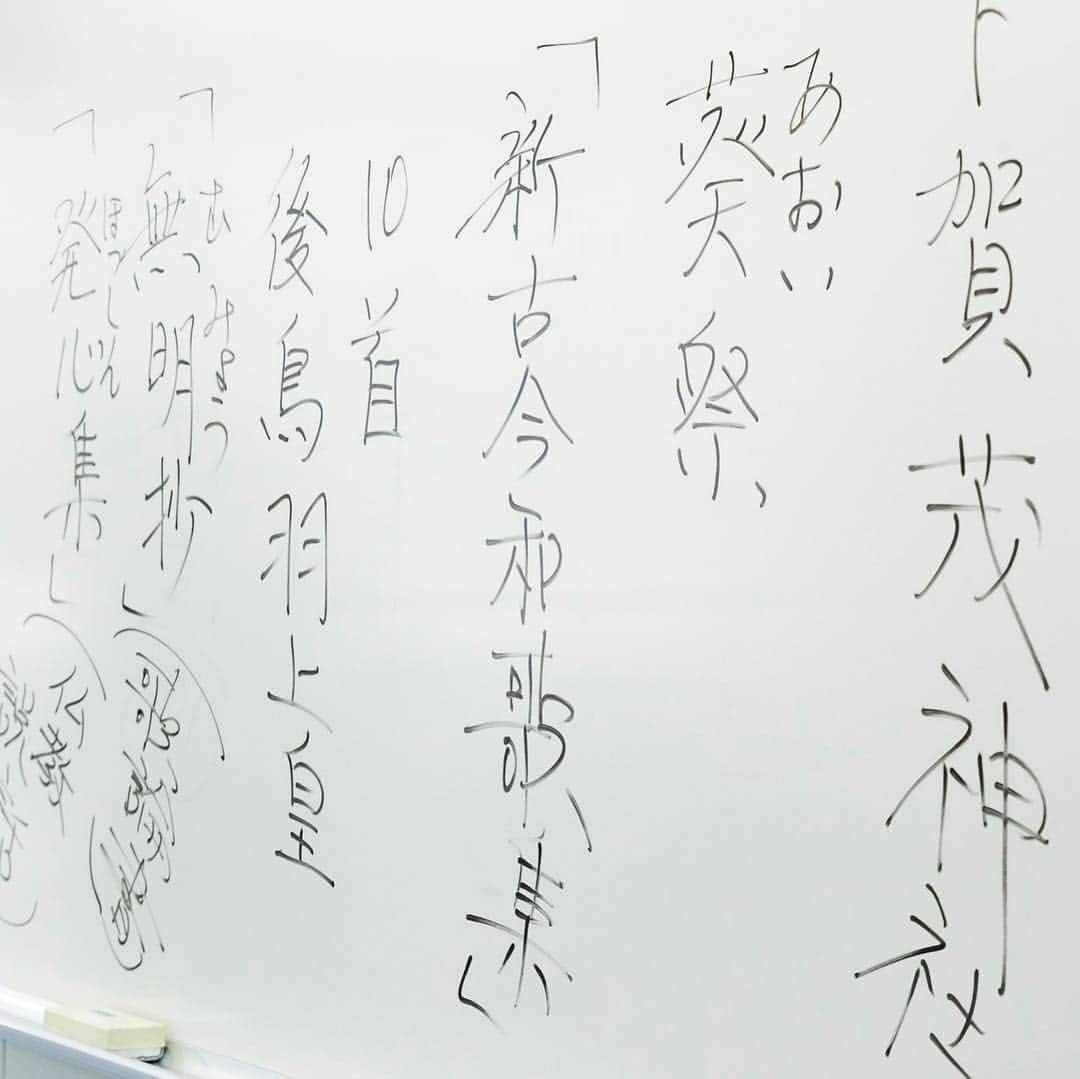 下賀茂神社
あおい
葵祭
「新古今和歌集」
10首
後鳥羽上皇
むみょう
「無明抄」
ほっしん
「発心集」(仏教説話)